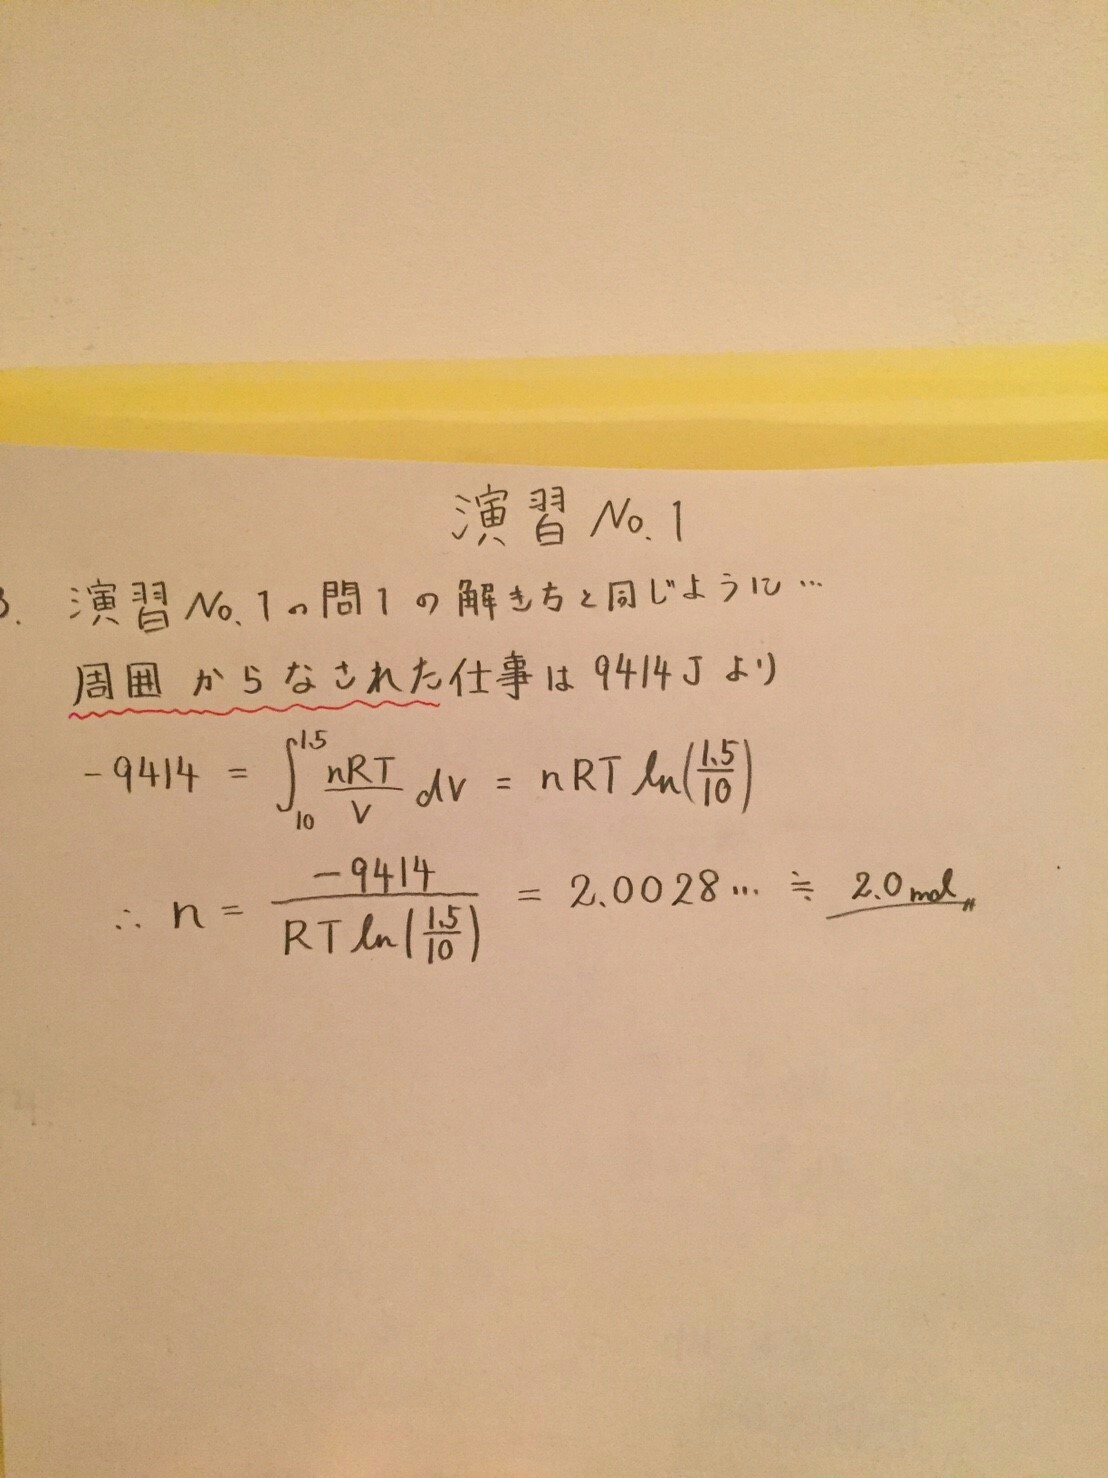 演習 No.1
3. 演習 No.1の問1の解き方と同じように…
周囲からなされた仕事は 9414J より
-9414 = ∫₁₀^1.5 nRT/V dV = nRT ln(1.5/10)
∴ n = -9414/RT ln(1.5/10) = 2.0028… ≒ 2.0mol〃